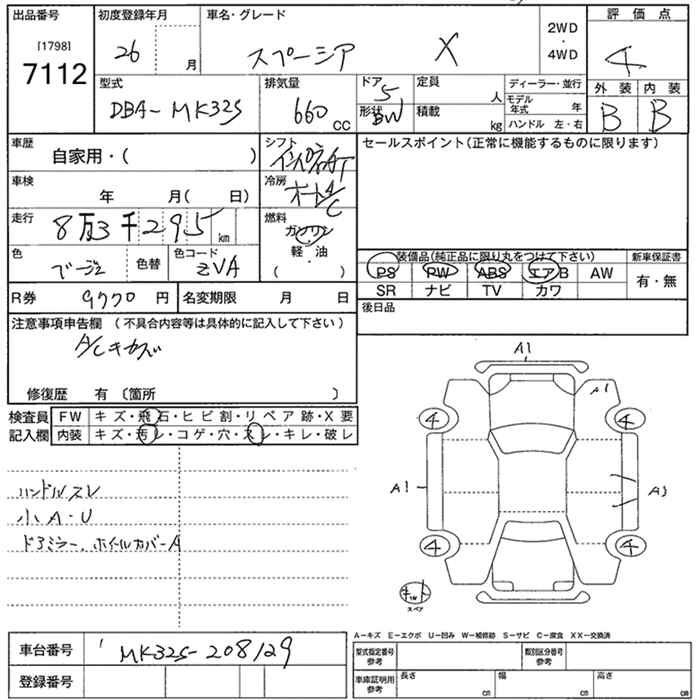 出品番号 初度登録年月 車名・グレード 2WD・4WD 評価点
[1798]
7112 26 月 スペーシア X 4
型式 排気量 ドア 定員 ディーラー・並行 外装 内装
DBA-MK32S 660 CC 5 人 モデル年式 年 B B
形状 BW 積載 kg ハンドル 左・右
車歴 シフト セールスポイント(正常に機能するものに限ります)
自家用・( ) インパネAT
車検 年 月( 日) 冷房 オートA/C
走行 8万3千295 km 燃料 ガソリン
軽・油
( ・ )
色 ベージュ 色替 色コード ZVA
装備品(純正品に限り丸をつけて下さい) 新車保証書
PS PW ABS エアB AW 有・無
SR ナビ TV カワ
R券 9770 円 名変期限 月 日 後日品
注意事項申告欄 (不具合内容等は具体的に記入して下さい)
A/Cキカズ
修復歴 有 〔箇所 〕
検査員 FW キズ・飛石・ヒビ割・リペア跡・X要
記入欄 内装 キズ・汚レ・コゲ・穴・スレ・キレ・破レ
ハンドルスレ
小A・U
ドアミラー、ホイールカバーA
A1
A1
4 4
A1 A3
4 4
キット
スペア
A−キズ E−エクボ U−凹み W−補修跡 S−サビ C−腐食 XX−交換済
車台番号 MK32S-208129
型式指定番号 参考 類別区分番号 参考
登録番号
車庫証明用 参考 長さ cm 幅 cm 高さ cm